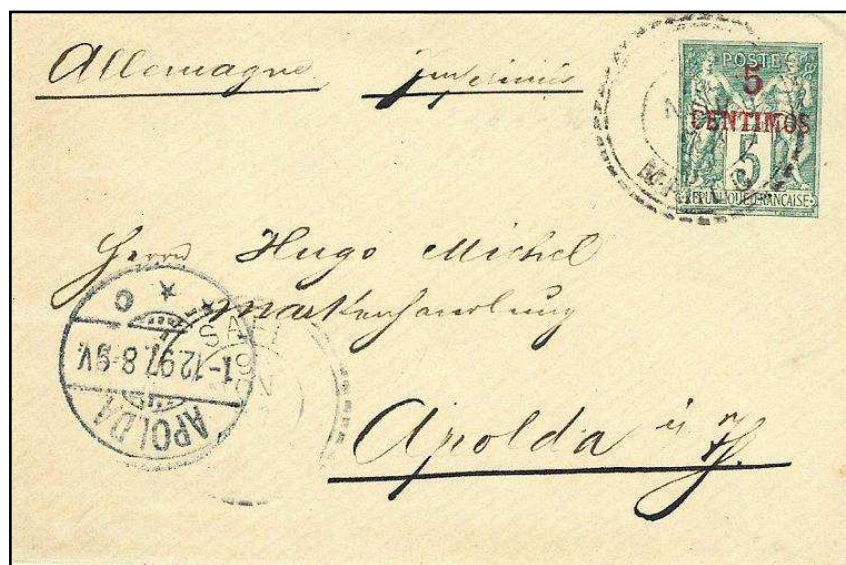 Allemagne Imprimés
POSTE
5
CENTIMOS
5
REPUBLIQUE FRANCAISE
Herrn Hugo Michel
Markenhandlung
Apolda i/Th.
SAFFI
APOLDA
1-12.97. 8-9V.
c